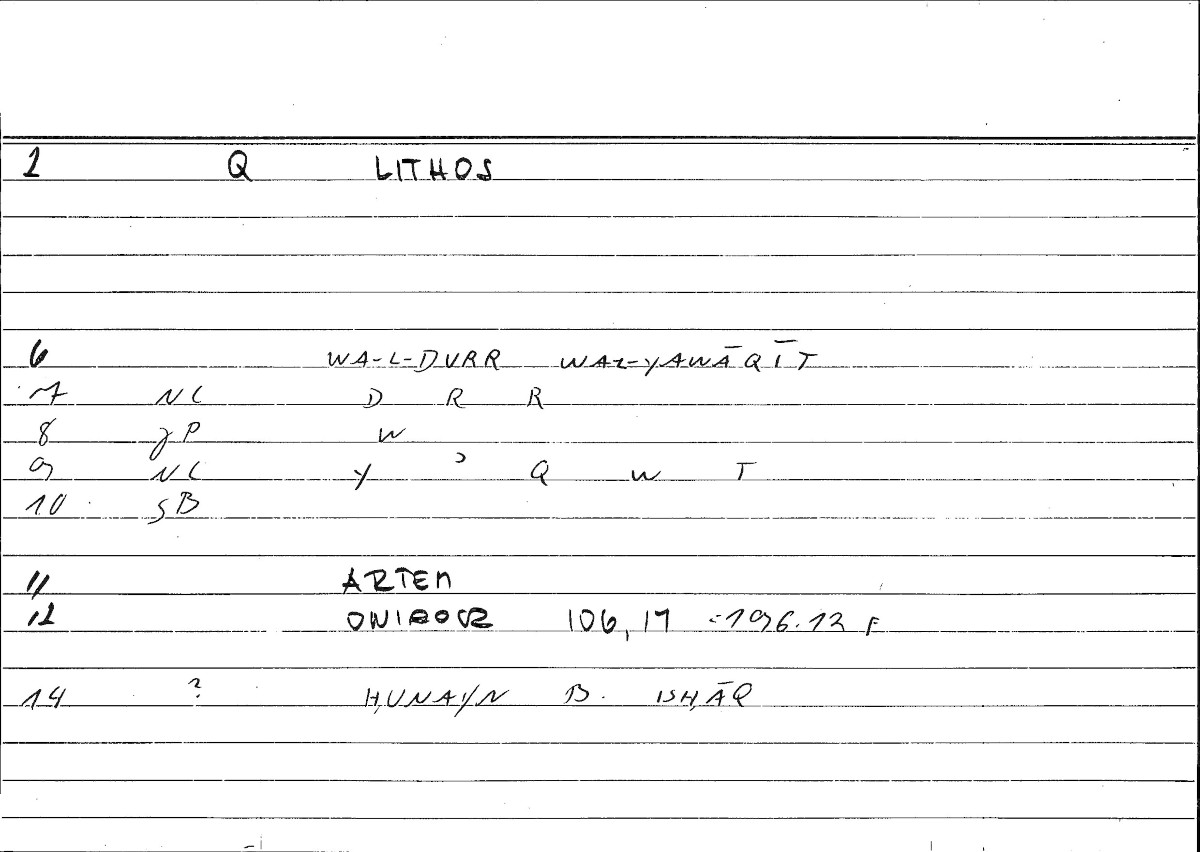 1 Q LITHOS
6 WA-L-DURR WAL-YAWĀQĪT
7 NC D R R
8 gP W
9 NC Y ʾ Q W T
10 SB
11 ARTEM
12 ONIROCR 106,17 =196.12 F
14 ? ḤUNAYN B. ISḤĀQ